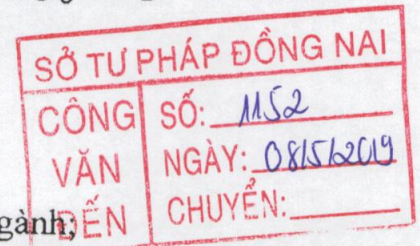 SỞ TƯ PHÁP ĐỒNG NAI
CÔNG VĂN ĐẾN
SỐ: 1152
NGÀY: 08/5/2019
CHUYỂN:
gành;